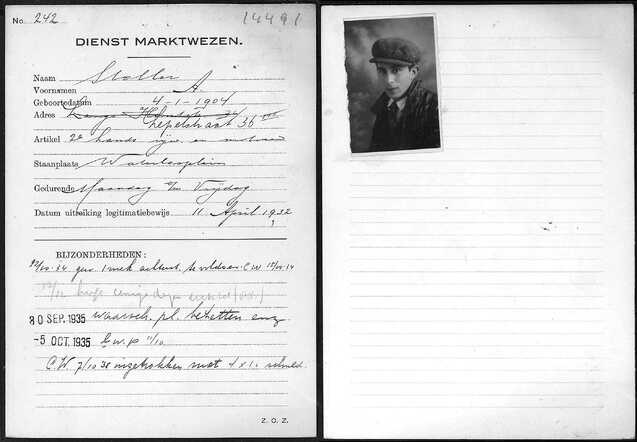 No. 242 14491
DIENST MARKTWEZEN.
Naam Stoller
Voornamen A.
Geboortedatum 4-1-1904
Adres Lange Houtstr 34
Lepelstraat 36
Artikel 2e hands ijzer en metaal
Staanplaats Waterlooplein
Gedurende Maandag t/m Vrijdag
Datum uitreiking legitimatiebewijs 11 April 1932
BIJZONDERHEDEN:
gew. 1 week achterst. te voldoen. C.W.
enige dagen
30 SEP. 1935 waarsch. pl. bezetten enz.
-5 OCT. 1935
C.W. 7/10 38 ingetrokken met 4 x 1.- schuld.
Z.O.Z.